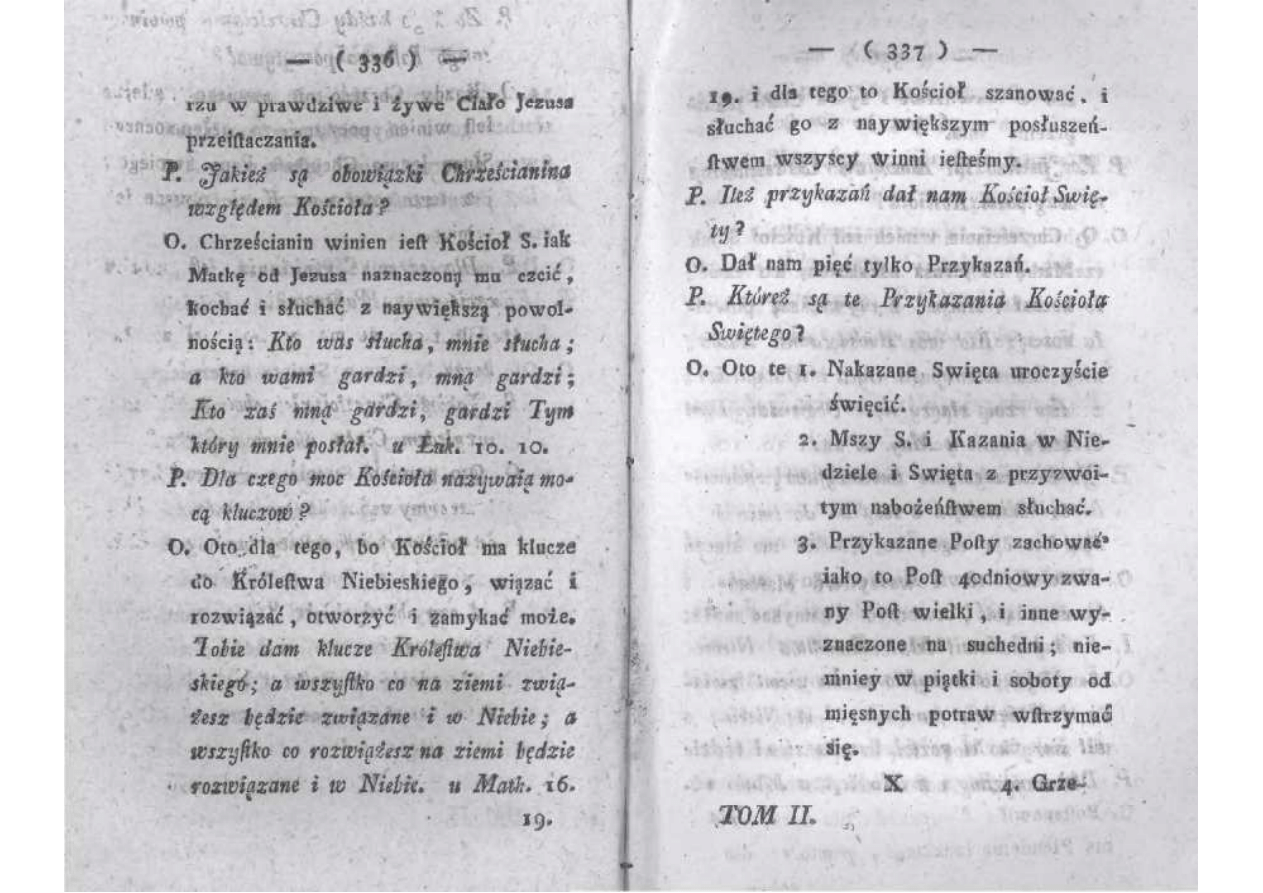 — ( 336 ) —
rzu w prawdziwe i żywe Ciało Jezusa
przeiſtaczania.
P. Jakież są obowiązki Chrześcianina
względem Kościoła?
O. Chrześcianin winien ieſt Kościoł S. iak
Matkę od Jezusa naznaczoną mu czcić,
kochać i słuchać z naywiększą powol-
nością: Kto was słucha, mnie słucha;
a kto wami gardzi, mną gardzi;
Kto zaś mną gardzi, gardzi Tym
który mnie posłał. u Łuk. 10. 10.
P. Dla czego moc Kościoła nazywaią mo-
cą kluczow?
O. Oto dla tego, bo Kościoł ma klucze
do Króleſtwa Niebieskiego, wiązać i
rozwiązać, otworzyć i zamykać może.
Tobie dam klucze Króleſtwa Niebie-
skiego; a wszyſtko co na ziemi zwią-
żesz będzie związane i w Niebie; a
wszyſtko co rozwiążesz na ziemi będzie
rozwiązane i w Niebie. u Math. 16.
19.
— ( 337 ) —
19. i dla tego to Kościoł szanować, i
słuchać go z naywiększym posłuszeń-
ſtwem wszyscy winni ieſteśmy.
P. Ileż przykazań dał nam Kościoł Swię-
ty?
O. Dał nam pięć tylko Przykazań.
P. Któreż są te Przykazania Kościoła
Swiętego?
O. Oto te 1. Nakazane Swięta uroczyście
święcić.
2. Mszy S. i Kazania w Nie-
dziele i Swięta z przyzwoi-
tym nabożeńſtwem słuchać.
3. Przykazane Poſty zachować,
iako to Poſt 40dniowy zwa-
ny Poſt wielki, i inne wy-
znaczone na suchedni; nie-
mniey w piątki i soboty od
mięsnych potraw wſtrzymać
się.
X 4. Grze-
TOM II.